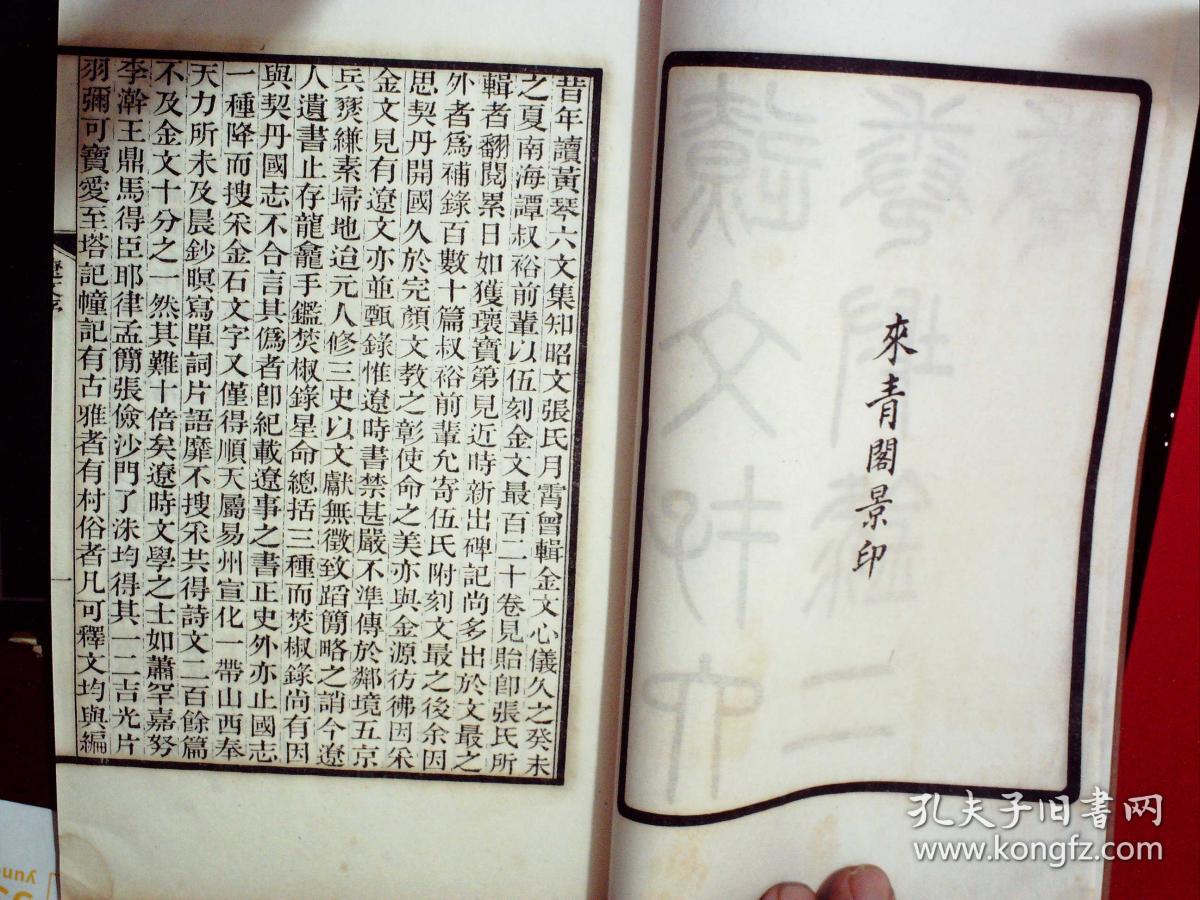 來青閣景印
昔年讀黃琴六文集知昭文張氏月霄曾輯金文心儀久之癸未
之夏南海譚叔裕前輩以伍刻金文最百二十卷見貽卽張氏所
輯者翻閱累日如獲瓌寶第見近時新出碑記尚多出於文最之
外者爲補錄百數十篇叔裕前輩允寄伍氏附刻文最之後余因
思契丹開國久於完顏文教之彰使命之美亦與金源彷彿因采
金文見有遼文亦並甄錄惟遼時書禁甚嚴不準傳於鄰境五京
兵燹縑素埽地迨元人修三史以文獻無徵致蹈簡略之誚今遼
人遺書止存龍龕手鑑焚椒錄星命總括三種而焚椒錄尚有因
與契丹國志不合言其僞者卽紀載遼事之書正史外亦止國志
一種降而搜采金石文字又僅得順天屬易州宣化一帶山西奉
天力所未及晨鈔暝寫單詞片語靡不搜采共得詩文二百餘篇
不及金文十分之一然其難十倍矣遼時文學之士如蕭罕嘉努
李澣王鼎馬得臣耶律孟簡張儉沙門了洙均得其一二吉光片
羽彌可寶愛至塔記幢記有古雅者有村俗者凡可釋文均與編
一
孔夫子旧书网
www.kongfz.com